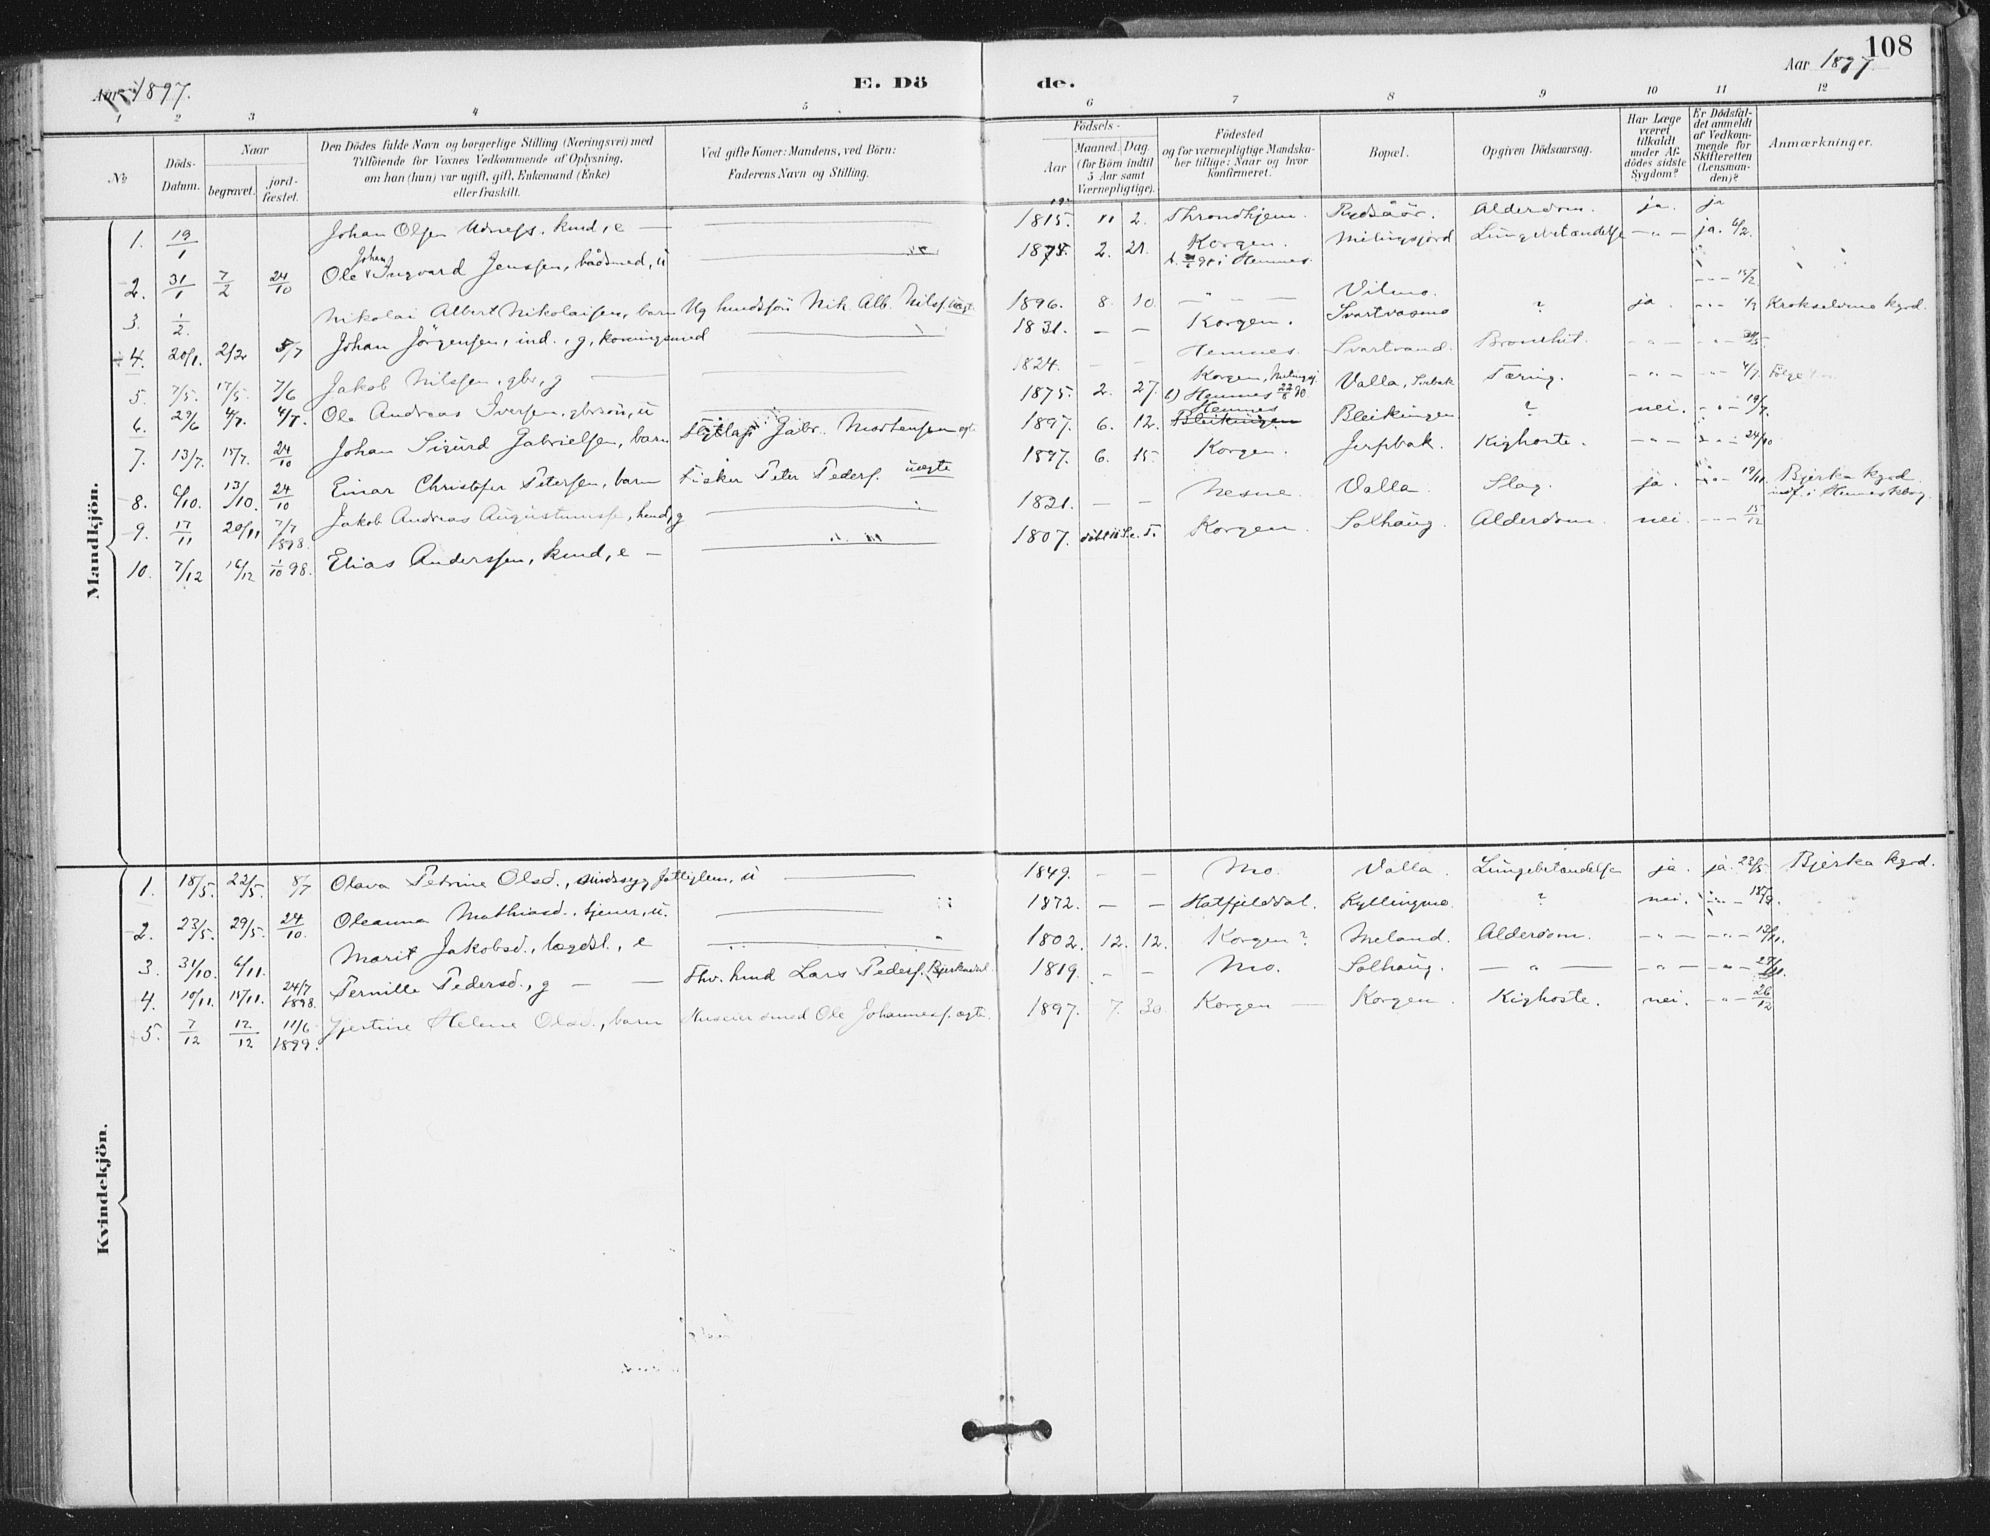 108
Aar 1897.
E. Döde.
Aar 1897.
1 2 3 4 5 6 7 8 9 10 11 12
No
Döds-Datum.
Naar
begravet.
jord-fæstet.
Den Dödes fulde Navn og borgerlige Stilling (Næringsvei) med
Tilföiende for Voxnes Vedkommende af Oplysning,
om han (hun) var ugift, gift, Enkemand (Enke)
eller fraskilt.
Ved gifte Koner: Mandens, ved Börn:
Faderens Navn og Stilling.
Födsels-
Aar
Maaned. Dag.
(for Börn indtil
5 Aar samt
Værnepligtige).
Födested
og for værnepligtige Mandska-
ber tillige: Naar og hvor
konfirmeret.
Bopæl.
Opgiven Dödsaarsag.
Har Læge
været
tilkaldt
under Af-
dödes sidste
Sygdom?
Er Dödsfal-
det anmeldt
af Vedkom-
mende for
Skifteretten
(Lensman-
den)?
Anmærkninger.
Mandkjön.
1. 19/1 Johan Olsen, kmd, e — 1815. 11 2. Throndhjem. Alderdom. ja. ja
2. 31/1 7/2 24/10 Ole Johan Ingvard Jenssen, baadsmed, u 1875. 2. 21. Korgen. Hemnes. Lungebetændelse — " — ja. 6/2.
3. 1/2. Nikolai Albert Nikolaisen, barn Nik. Alb. Nils. uægt. 1896. 8. 10. — " — Vilmo. ? ja. Krokselvene kgrd.
4. 20/1. 2/2 5/7 Johan Jörgensen, ind., g, 1831. — — Korgen. Svartvasmo
5. 7/5. 17/5. 7/6 Jakob Nilssen, gbr, g 1824. — — Hemnes. Svartvand. Bronchit. — " —
6. 29/6 4/7. 4/7. Ole Andreas Iversen, gbrsön, u 1875. 2. 27. Korgen, Hemnes Valla, Tæring. — " — 4/7.
7. 13/7. 15/7. 24/10 Johan Sigurd Gabrielsen, barn Gabr. Mortensen ægt. 1897. 6. 12. Hemnes Bleikingen Bleikingen ? nei. 19/7.
8. 6/10. 13/10. 24/10 Einar Christofer Petersen, barn Fisker Peter Peders. uægte 1897. 6. 15. Korgen. Jerpbak. Kighoste. — " — 24/10
9. 17/11 20/11 7/7 1898. Jakob Andreas Augustinussen, kmd, g 1821. — — Nesne. Valla. Slag. ja. 19/11. Bjerka kgrd.
10. 7/12 16/12 1/10 98. Elias Anderssen, kmd, e — 1807. Korgen. Solhaug. Alderdom. nei. 15/12
Kvindekjön.
1. 18/5. 22/5. 5/7 Olava Petrine Olsd., sindssyg fattiglem, u 1849. — — Mo. Valla. Lungebetændelse ja. ja. 22/5. Bjerka kgrd.
2. 23/5. 29/5. 24/10. Oleanna Mathiasd., tjener, u. 1872. — — Hatfjelddal. Kyllingmo. ? nei.
3. 31/10. 6/11. Marit Jakobsd., lægdsl., e 1802. 12. 12. Korgen? Meland. Alderdom. — " — 12/11.
4. 10/11. 15/11. 24/7 1898. Pernille Pedersd., g — — Fhv. kmd Lars Peders. (Bjerkadal. 1819. — — Mo. Solhaug. — " — — " — 27/11.
5. 7/12 12/12 11/6 1899. Gjertine Helene Olsd., barn Ole Johanness. ægte. 1897. 7. 30. Korgen — Korgen. Kighoste. nei. — " — 26/12